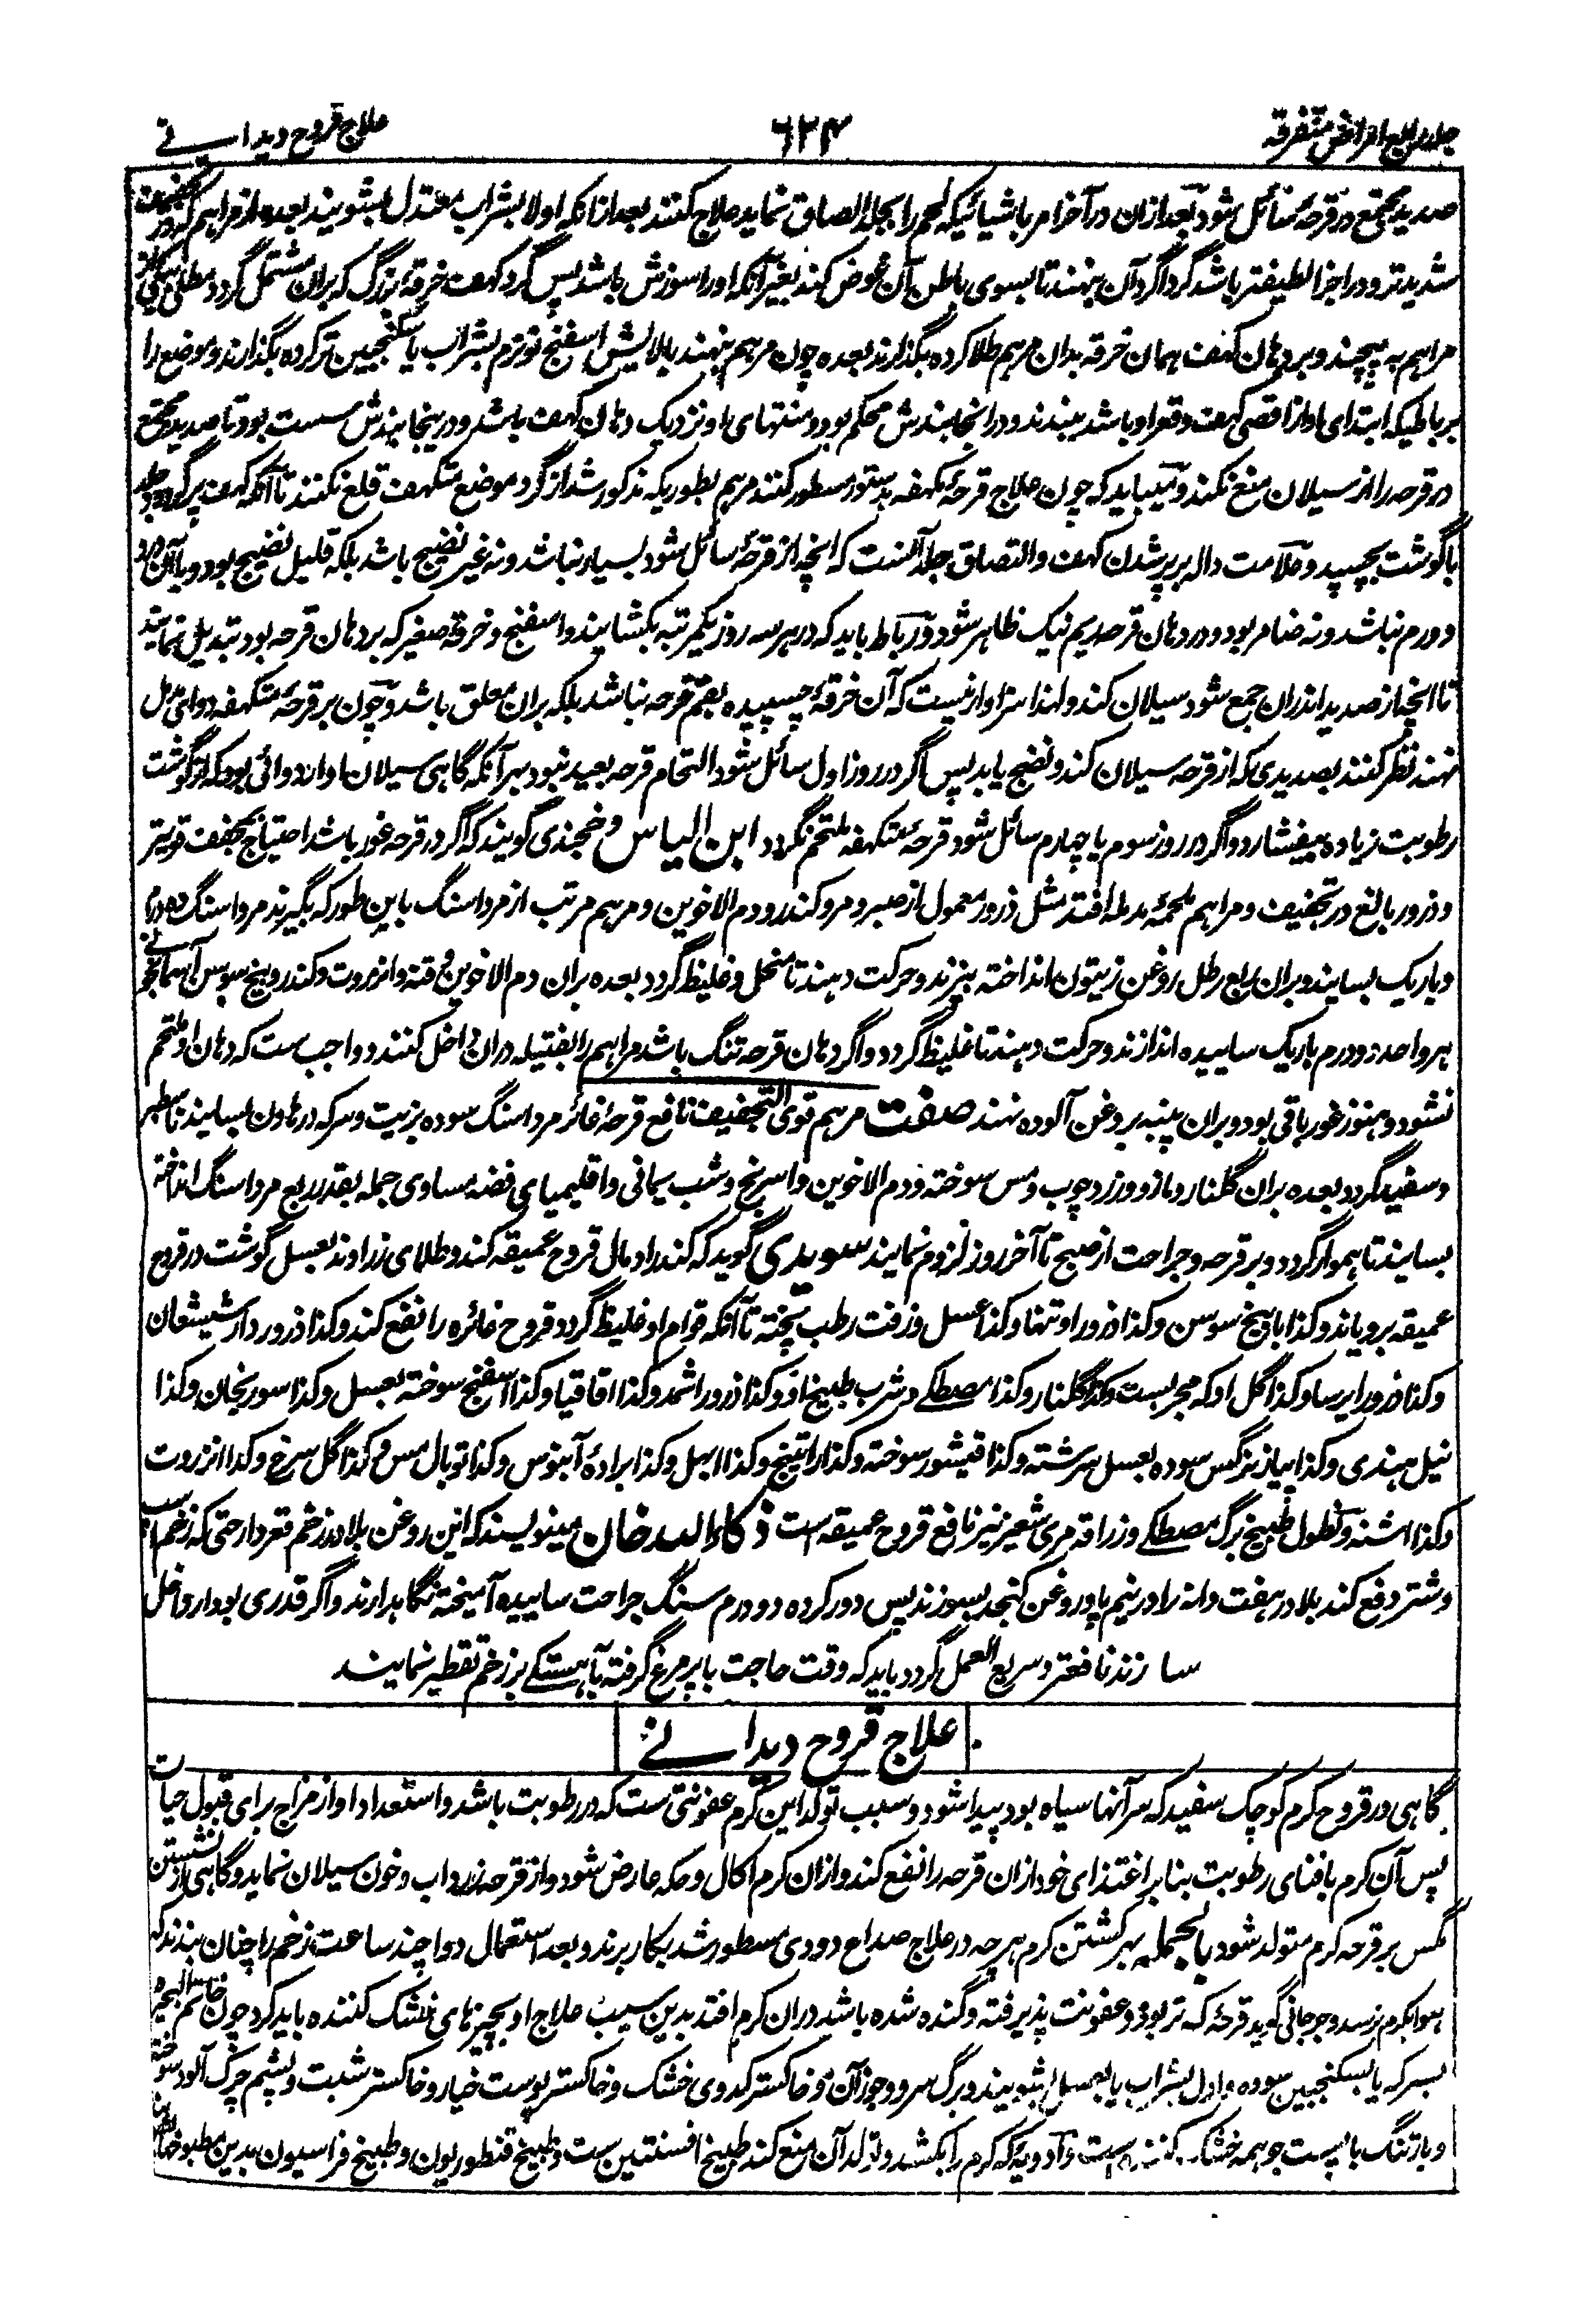 جلد رابع امراض متفرقه
۶۲۴
علاج قروح دیدانے
صدید مجتمع در قرحه سائل شود بعد ازان در آخر امر باشیائیکه لحم را بجلد الصاق نماید علاج کنند بعد ازانکه اولا بشراب معتدل بشویند بعده از مراهم که در تجفیف
شدید تر و در اجزا لطیفتر باشد گرداگرد آن بنهند تا بسوی باطن آن غوض کند بغیر آنکه او را سوزش باشد پس گرد کهف خرقه بزرگ که بران مشتمل گردد مطلی بیکی از
مراهم به پیچند و بر دهان کهف همان خرقه بدان مرهم طلا کرده بگذارند بعده چون مرهم بنهند بالایش اسفنج نو نرم بشراب یا سکنجبین تر کرده بگذارند و موضع را
برباطیکه ابتدای او از اقصی کهف و قعر او باشد ببندند و در انجا بندش محکم بود و منتهای او نزدیک دهان کهف باشد و درینجا بندش سست بود تا صدید مجتمع
در قرحه را از سیلان منع نکند و میباید که چون علاج قرحهٔ کهفه بدستور مسطور کنند مرهم بطوریکه مذکور شد از گرد موضع متکهف قلع نکنند تا آنکه کهف پر گردد و جلد
با گوشت بچسپد و علامت داله بر پر شدن کهف و التصاق جلد آنست که انچه از قرحه سائل شود بسیار نباشد و نه غیر نضیج باشد بلکه قلیل نضیج بود و با آن درد
و ورم نباشد و نه ضامر بود و در دهان قرحه ریم نیک ظاهر شود و رباط باید که در هر سه روز یکمرتبه بکشایند و اسفنج و خرقه صغیر که بر دهان قرحه بود تبدیل نمایند
تا انچه از صدید اندران جمع شود سیلان کند و لهذا سزاوار نیست که آن خرقه چسپیده بفم قرحه نباشد بلکه بران معلق باشد و چون بر قرحهٔ متکهفه دوای مدمل
نهند نظر کنند بصدیدی که از قرحه سیلان کند و نضج یابد پس اگر در روز اول سائل شود التحام قرحه بعید نبود بهر آنکه گاهی سیلان او از دوائی بود که از گوشت
رطوبت زیاده بیفشارد و اگر در روز سوم یا چهارم سائل شود قرحهٔ متکهفه ملتحم نگردد ابن الیاس و خجندی گویند که اگر در قرحه غور باشد احتیاج بمجفف قویتر
و ذرور بالغ در تجفیف و مراهم ملحمهٔ مدمله افتد مثل ذرور معمول از صبر و مر و کندر و دم الاخوین و مرهم مرتب از مرداسنگ باین طور که بگیرند مرداسنگ ده درم
و باریک بسایند و بران ربع رطل روغن زیتون انداخته بپزند و حرکت دهند تا منحل و غلیظ گردد بعده بران دم الاخوین و قنه و انزروت و کندر و بیخ سوسن آسمانجونی
هر واحد دو درم باریک ساییده اندازند و حرکت دهند تا غلیظ گردد و اگر دهان قرحه تنگ باشد مراهم را بفتیله دران داخل کنند و واجب ست که دهان او ملتحم
نشود و هنوز غور باقی بود و بران پنبه بروغن آلوده نهند صفت مرهم قوی التجفیف نافع قرحهٔ غائر مرداسنگ سوده بزیت و سرکه در هاون بسایند تا سطبر
و سفید گردد بعده بران گلنار و مازو و زرد چوب و مس سوخته و دم الاخوین و اسرنج و شب یمانی و اقلیمیای فضه مساوی جمله بقدر ربع مرداسنگ انداخته
بسایند تا هموار گردد و بر قرحه و جراحت از صبح تا آخر روز لزوم نمایند سویدی گوید که کندر ادمال قروح عمیقه کند و طلای زراوند بعسل گوشت در قروح
عمیقه برویاند و کذا با بیخ سوسن و کذا ذرور او تنها و کذا عسل و زفت رطب پخته تا آنکه قوام او غلیظ گردد قروح غائره را نفع کند و کذا ذرور دارشیشعان
و کذا ذرور ایرسا و کذا گل او که مجربست و کذا گلنار و کذا مصطکے و شرب طبیخ او و کذا ذرور اشمد و کذا اقاقیا و کذا اسفنج سوخته بعسل و کذا سورنجان و کذا
نیل هندی و کذا پیاز نرگس سوده بعسل سرشته و کذا قیشور سوخته و کذا راتینج و کذا ابهل و کذا برادهٔ آبنوس و کذا توبال مس و کذا گل سرخ و کذا انزروت
و کذا اشنه و نطول طبیخ برگ مصطکے و زراقه مری شعیر نیز نافع قروح عمیقه است ذکاءالله خان مینویسند که این روغن بلادر زخم قعردار حتی که زخم اسپ
و شتر دفع کند بلادر هفت دانه را در نیم پاو روغن کنجد بسوزند پس دور کرده دو درم سنگ جراحت ساییده آمیخته نگاهدارند و اگر قدری بودار داخل
سازند نافعتر و سریع العمل گردد باید که وقت حاجت با پر مرغ گرفته بآهستگے بر زخم تقطیر نمایند
علاج قروح دیدانے
گاهی در قروح کرم کوچک سفید که سر آنها سیاه بود پیدا شود و سبب تولد این کرم عفونتی ست که در رطوبت باشد و استعداد او از مزاج برای قبول حیات
پس آن کرم بافنای رطوبت بنابر اغتذای خود ازان قرحه را نفع کند و ازان کرم اکال و حکه عارض شود و از قرحه زرداب و خون سیلان نماید و گاهی از نشستن
مگس بر قرحه کرم متولد شود بالجمله بهر کشتن کرم هرچه در علاج صداع دودی مسطور شد بکار برند و بعد استعمال دوا چند ساعت زخم را چنان بندند که
هوا بکرم نرسد و جرجانی گوید قرحهٔ که تر بود و عفونت پذیرفته و گنده شده باشد دران کرم افتد بدین سبب علاج او بچیزهای خشک کننده باید کرد چون
بسرکه یا بسکنجبین سوده و اول بشراب یا بعسل بشویند و برگ سرو و جوز آن و خاکستر کدوی خشک و خاکستر پوست خیار و خاکستر شبت و پشم چرک آلود سوخته
و بارتنگ با پست جو همه خشک کننده است و ادویهٔ که کرم را بکشد و تولد آن منع کند طبیخ افسنتین ست و طبیخ قنطوریون و طبیخ فراسیون بدین مطبوخها